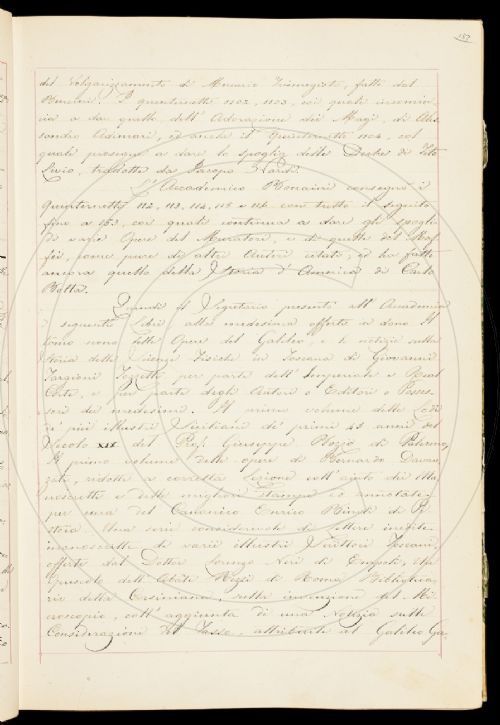 157
del Volgarizzamento di Mercurio Trismegisto, fatto dal
Benci. I quinternetti 1102, 1103, coi quali incomin-
cia a dar quelle dell'Adorazione dei Magi, di Ales-
sandro Adimari, ed anche il Quinternetto 1104, col
quale prosegue a dare lo spoglio delle Deche di Tito
Livio, tradotte da Jacopo Nardi.
L'Accademico consegnò i
Quinternetti 112, 113, 114, 115 e 116 con tutto il seguito
fino a 153, coi quali continua a dare gli spogli
di varie Opere del Muratori, e di quelle del Maf-
fei, come pure di altri Autori citati, ed ha fatto
ancora quello della Storia d'America di Carlo
Botta.
Quindi il Segretario presentò all'Accademia
i seguenti Libri alla medesima offerti in dono. Il
tomo nono delle Opere del Galileo e le notizie sulla
storia delle Scienze Fisiche in Toscana di Giovanni
Targioni Tozzetti per parte dell'Imperiale e Real
Corte, e per parte degli Autori o Editori o Posses-
sori dei medesimi. Il primo volume delle Lodi
de' più illustri Siciliani de' primi 45 anni del
Secolo XIX del Prof. Giuseppe Bozzo di Palermo,
Il primo volume delle opere di Bernardo Davan-
zati, ridotte a corretta lezione coll'ajuto dei Ma-
noscritti e delle migliori stampe ed annotate
per cura del Canonico Enrico Bindi di Pi-
stoia. Una serie considerevole di lettere inedite
manoscritte di varii illustri Scrittori Toscani
offerte dal Dottor Lorenzo Neri di Empoli, Un
Opuscolo dell'Abate Rezzi di Roma Biblioteca-
rio della Corsiniana, sulla invenzione del Mi-
croscopio, coll'aggiunta di una Notizia sulle
Considerazioni al Tasso, attribuite al Galileo Ga-